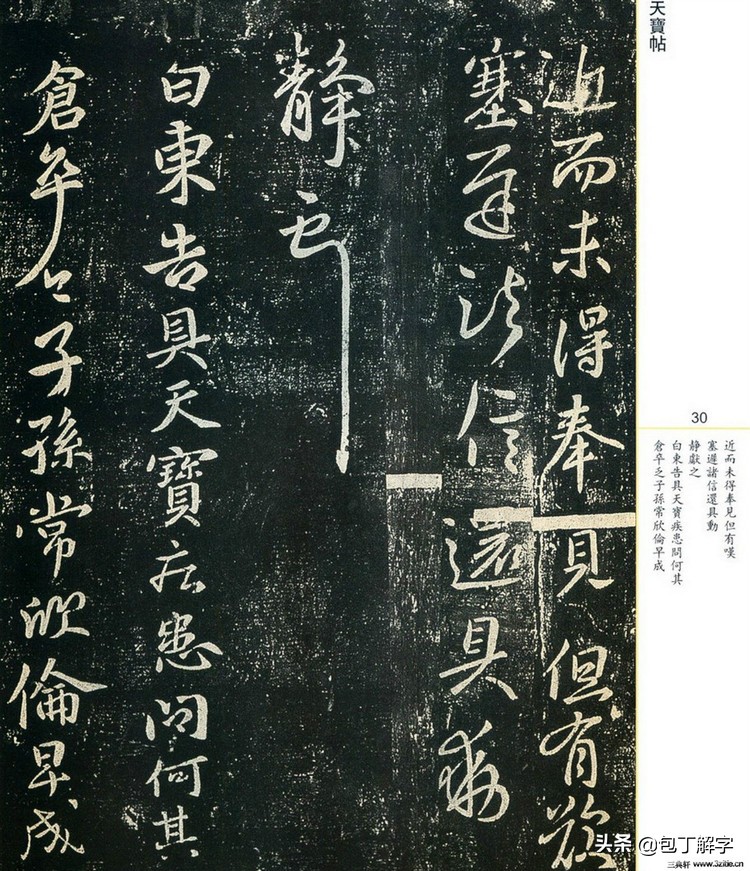 天寶帖
30
近而未得奉見但有嘆
塞遲諸信還具動
静獻之
白東告具天寶疾患問何其
倉卒之子孫常欣倫早成
近而未得奉見但有歎
塞遲諸信還具動
静獻之
白東告具天寶疾患問何其
倉卒之子孫常欣倫早成
头条 @包丁解字
www.3zitie.cn